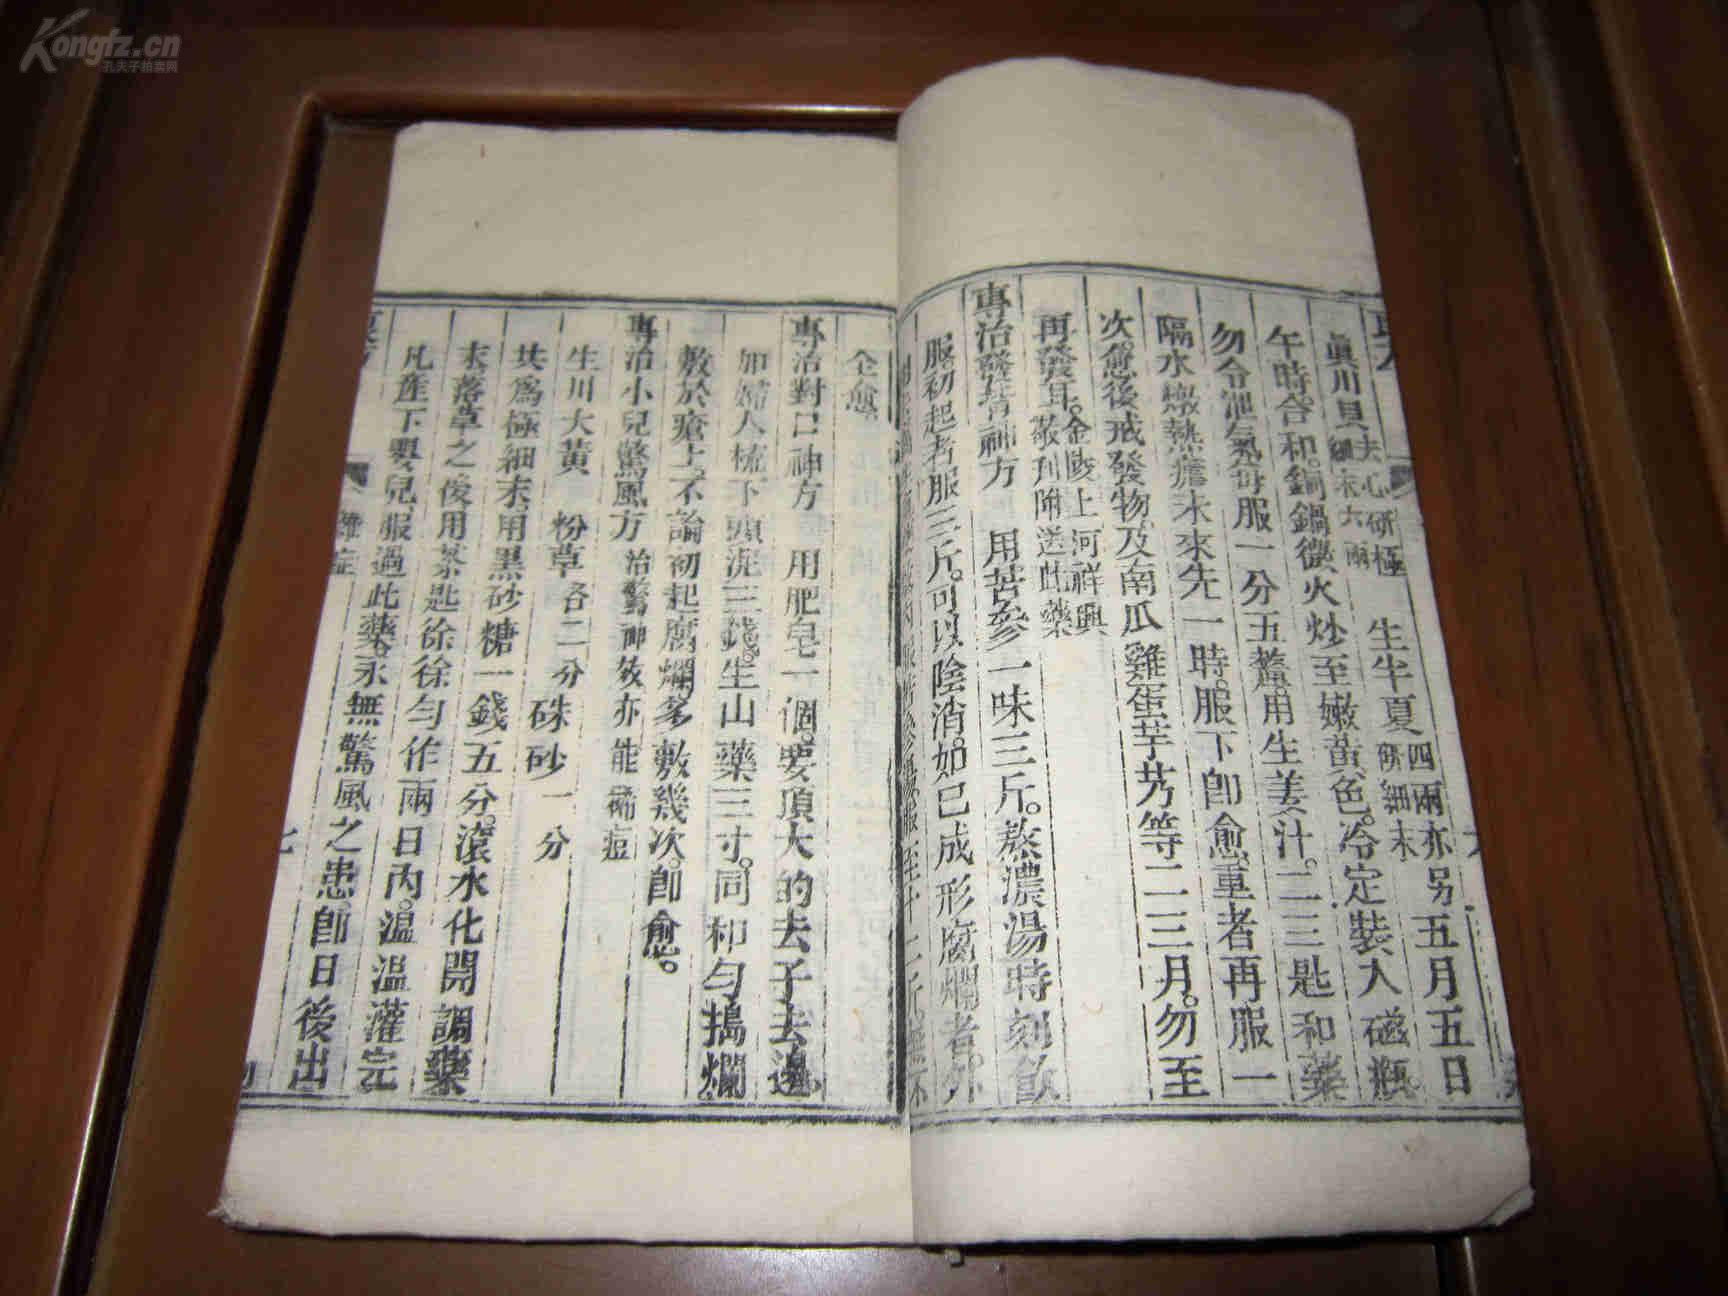 Kongfz.cn
孔夫子拍卖网
眞川貝去心研極細末六兩 生半夏四兩亦另研細末 五月五日
午時合和銅鍋微火炒至嫩黃色冷定裝入磁瓶
勿令泄氣每服一分五釐用生姜汁二三匙和藥
隔水燉熱瘧未來先一時服下卽愈重者再服一
次愈後戒發物及南瓜雞蛋芋艿等二三月勿至
再發耳金陵上河祥興敬刋附送此藥
專治發背神方 用苦參一味三斤熬濃湯時刻飮
服初起者服三斤可以陰消如已成形腐爛者外
全愈
專治對口神方 用肥皂一個要頂大的去子去邊
如婦人梳下頭泥三錢生山藥三寸同和勻搗爛
敷於瘡上不論初起腐爛多敷幾次卽愈
專治小兒驚風方 治驚神效亦能稀痘
生川大黃 粉草各二分 硃砂一分
共為極細末用黑砂糖一錢五分滾水化開調藥
末落草之後用茶匙徐徐勻作兩日內溫溫灌完
凡產下嬰兒服過此藥永無驚風之患卽日後出
雜症
七